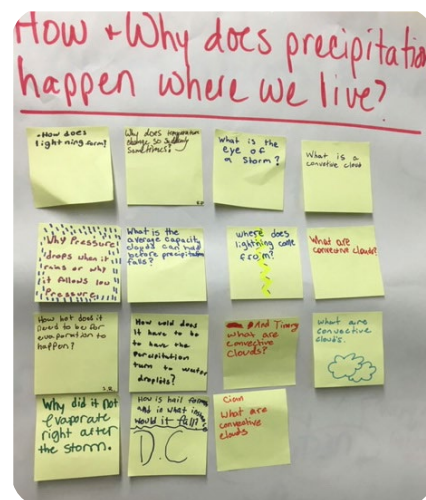 How + Why does precipitation
happen where we live?
-How does
lightning form?
Why does temperature
change so suddenly
sometimes?
What is the
eye of
a storm?
What is a
convective cloud
Why Pressure
drops when it
rains or why
it allows low
Pressure
What is the
average capacity
clouds can hold
before precipitation
falls?
where does
lightning come
from?
What are
convective clouds?
How hot does it
need to be for
evaporation to
happen?
How cold does
it have to be
to have the
percipitation
turn to water
droplits?
And Timmy
what are
convective
clouds?
what are
convective
clouds.
Why did it not
evaporate
right after
the storm.
How is hail formed
and in what
would it fall?
D.C
Cian
what are
convective
clouds